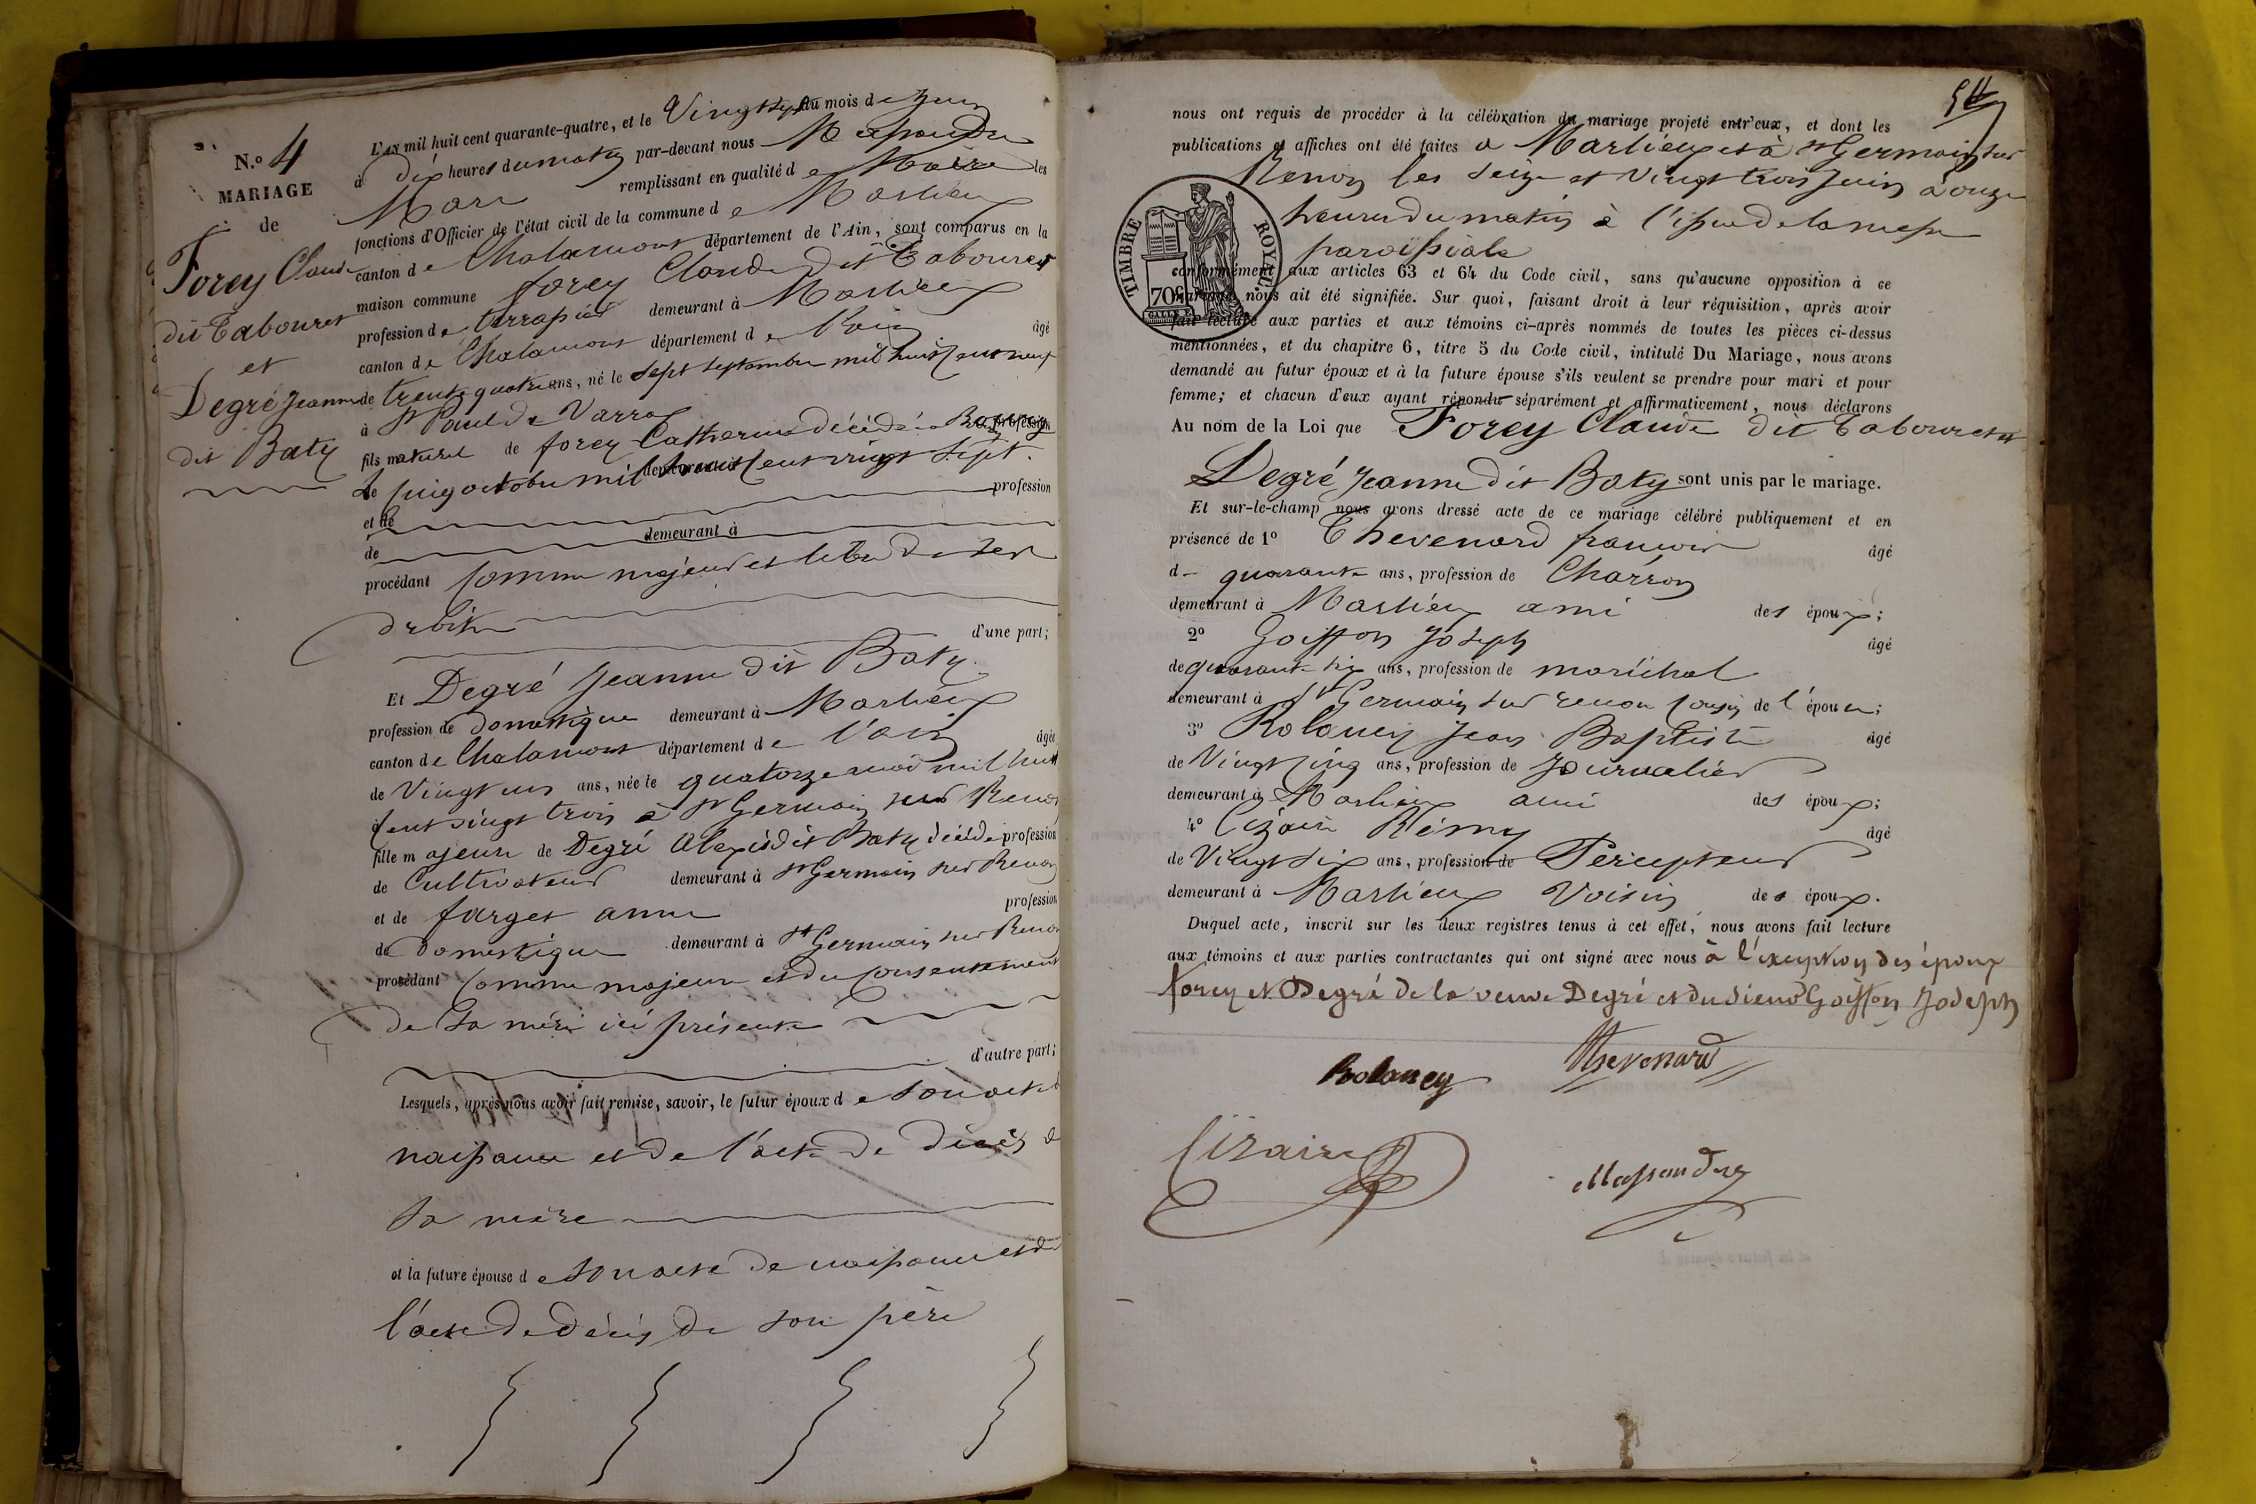 N.º 4
MARIAGE
de
Forey Claude
dit Tabouret
et
Degré Jeanne
dit Baty
L'AN mil huit cent quarante-quatre, et le Vingt sept du mois de Juin
à dix heures du matin par-devant nous Messandre
Marc remplissant en qualité de Maire les
fonctions d'Officier de l'état civil de la commune de Marlieux
canton de Chalamont département de l'Ain, sont comparus en la
maison commune forey Claude dit Tabouret
profession de terrassier demeurant à Marlieux
canton de Chalamont département de l'ain âgé
de trente quatre ans, né le sept septembre mil huit cent neuf
à St Paul de Varax
fils naturel de forey Catherine décédée à Bourg profession
le cinq octobre mil huit cent vingt sept. demeurant à
et de profession
de demeurant à
procédant comme majeur et libre de ses
droits
d'une part;
Et Degré Jeanne dit Baty
profession de domestique demeurant à Marlieux
canton de Chalamont département de l'ain âgée
de Vingt un ans, née le quatorze mai mil huit
cent vingt trois à St Germain sur Renon
fille majeure de Degré Alexis dit Baty décédé profession
de Cultivateur demeurant à St Germain sur Renon
et de farget anne profession
de domestique demeurant à St Germain sur Renon
procédant comme majeure et du consentement
de sa mère ici présente
d'autre part;
Lesquels, après nous avoir fait remise, savoir, le futur époux de son acte d
naissance et de l'acte de décès d
sa mère
et la future épouse de son acte de naissance et de
l'acte de décès de son père
nous ont requis de procéder à la célébration du mariage projeté entr'eux, et dont les
publications et affiches ont été faites à Marlieux et à St Germain sur
Renon les seize et vingt trois Juin à onze
heures du matin à l'issue de la messe
paroissiale
TIMBRE ROYAL.
70c
conformément aux articles 63 et 64 du Code civil, sans qu'aucune opposition à ce
mariage nous ait été signifiée. Sur quoi, faisant droit à leur réquisition, après avoir
fait lecture aux parties et aux témoins ci-après nommés de toutes les pièces ci-dessus
mentionnées, et du chapitre 6, titre 5 du Code civil, intitulé Du Mariage, nous avons
demandé au futur époux et à la future épouse s'ils veulent se prendre pour mari et pour
femme; et chacun d'eux ayant répondu séparément et affirmativement, nous déclarons
Au nom de la Loi que Forey Claude dit Tabouret et
Degré Jeanne dit Baty sont unis par le mariage.
Et sur-le-champ nous avons dressé acte de ce mariage célébré publiquement et en
présence de 1º Thevenard francois âgé
de quarante ans, profession de Charron
demeurant à Marlieux ami des époux;
2º Goiffon Joseph âgé
de quarante six ans, profession de maréchal
demeurant à St Germain sur renon cousin de l'épouse;
3º Rolaney Jean Baptiste âgé
de Vingt cinq ans, profession de Journalier
demeurant à Marlieux ami des époux;
4º Cizaire Rémy âgé
de Vingt six ans, profession de Percepteur
demeurant à Marlieux Voisin des époux.
Duquel acte, inscrit sur les deux registres tenus à cet effet, nous avons fait lecture
aux témoins et aux parties contractantes qui ont signé avec nous à l'exception des époux
forey et Degré de la veuve Degré et du sieur Goiffon Joseph
Rolaney Thevenard
Cizaire Messandre